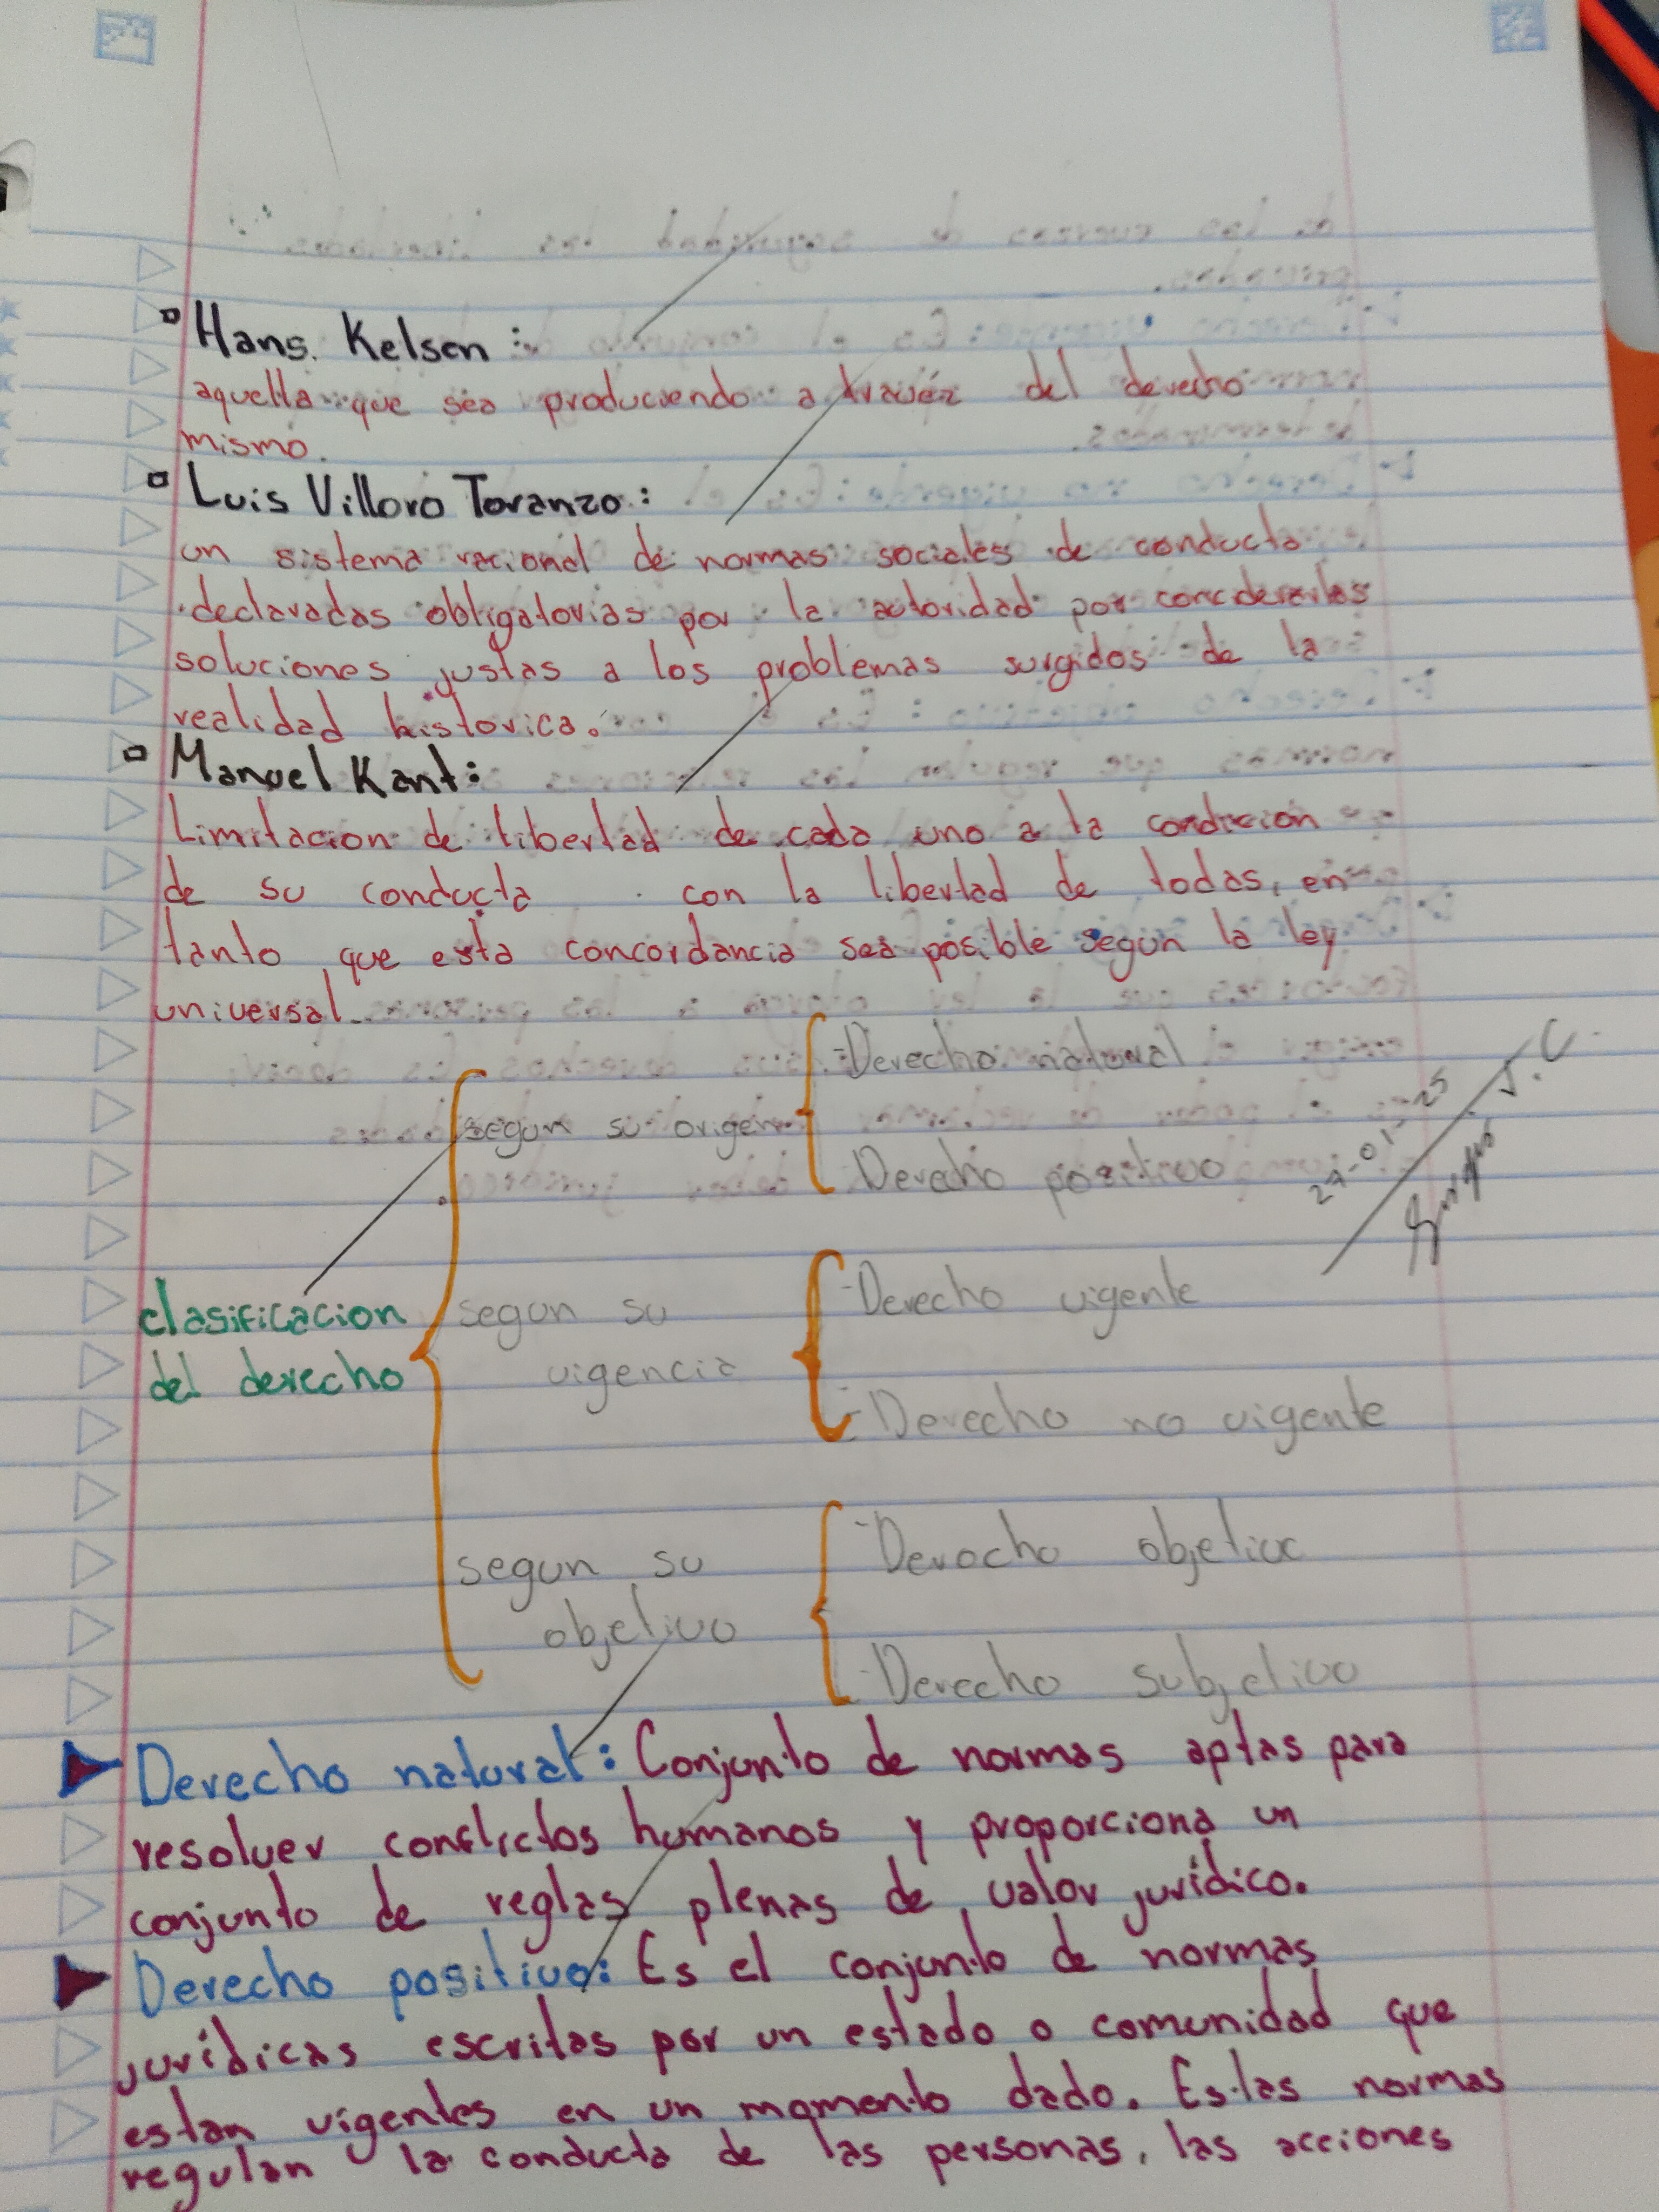 Hans Kelsen :
aquella que sea produciendo a travéz del derecho
mismo.
Luis Villoro Toranzo :
un sistema racional de normas sociales de conducta
declaradas obligatorias por la autoridad por conciderarlas
soluciones justas a los problemas surgidos de la
realidad historica.
Manuel Kant:
Limitacion de libertad de cada uno a la condicion
de su conducta con la libertad de todas, en
tanto que esta concordancia sea posible segun la ley
universal.
clasificacion
del derecho
segun su origen
-Derecho natural
-Derecho positivo
segun su
vigencia
-Derecho vigente
-Derecho no vigente
segun su
objetivo
-Derecho objetivo
-Derecho subjetivo
J.C
Derecho natural: Conjunto de normas aptas para
resolver conflictos humanos y proporciona un
conjunto de reglas plenas de valor jurídico.
Derecho positivo: Es el conjunto de normas
jurídicas escritas por un estado o comunidad que
estan vigentes en un momento dado. Estas normas
regulan la conducta de las personas, las acciones